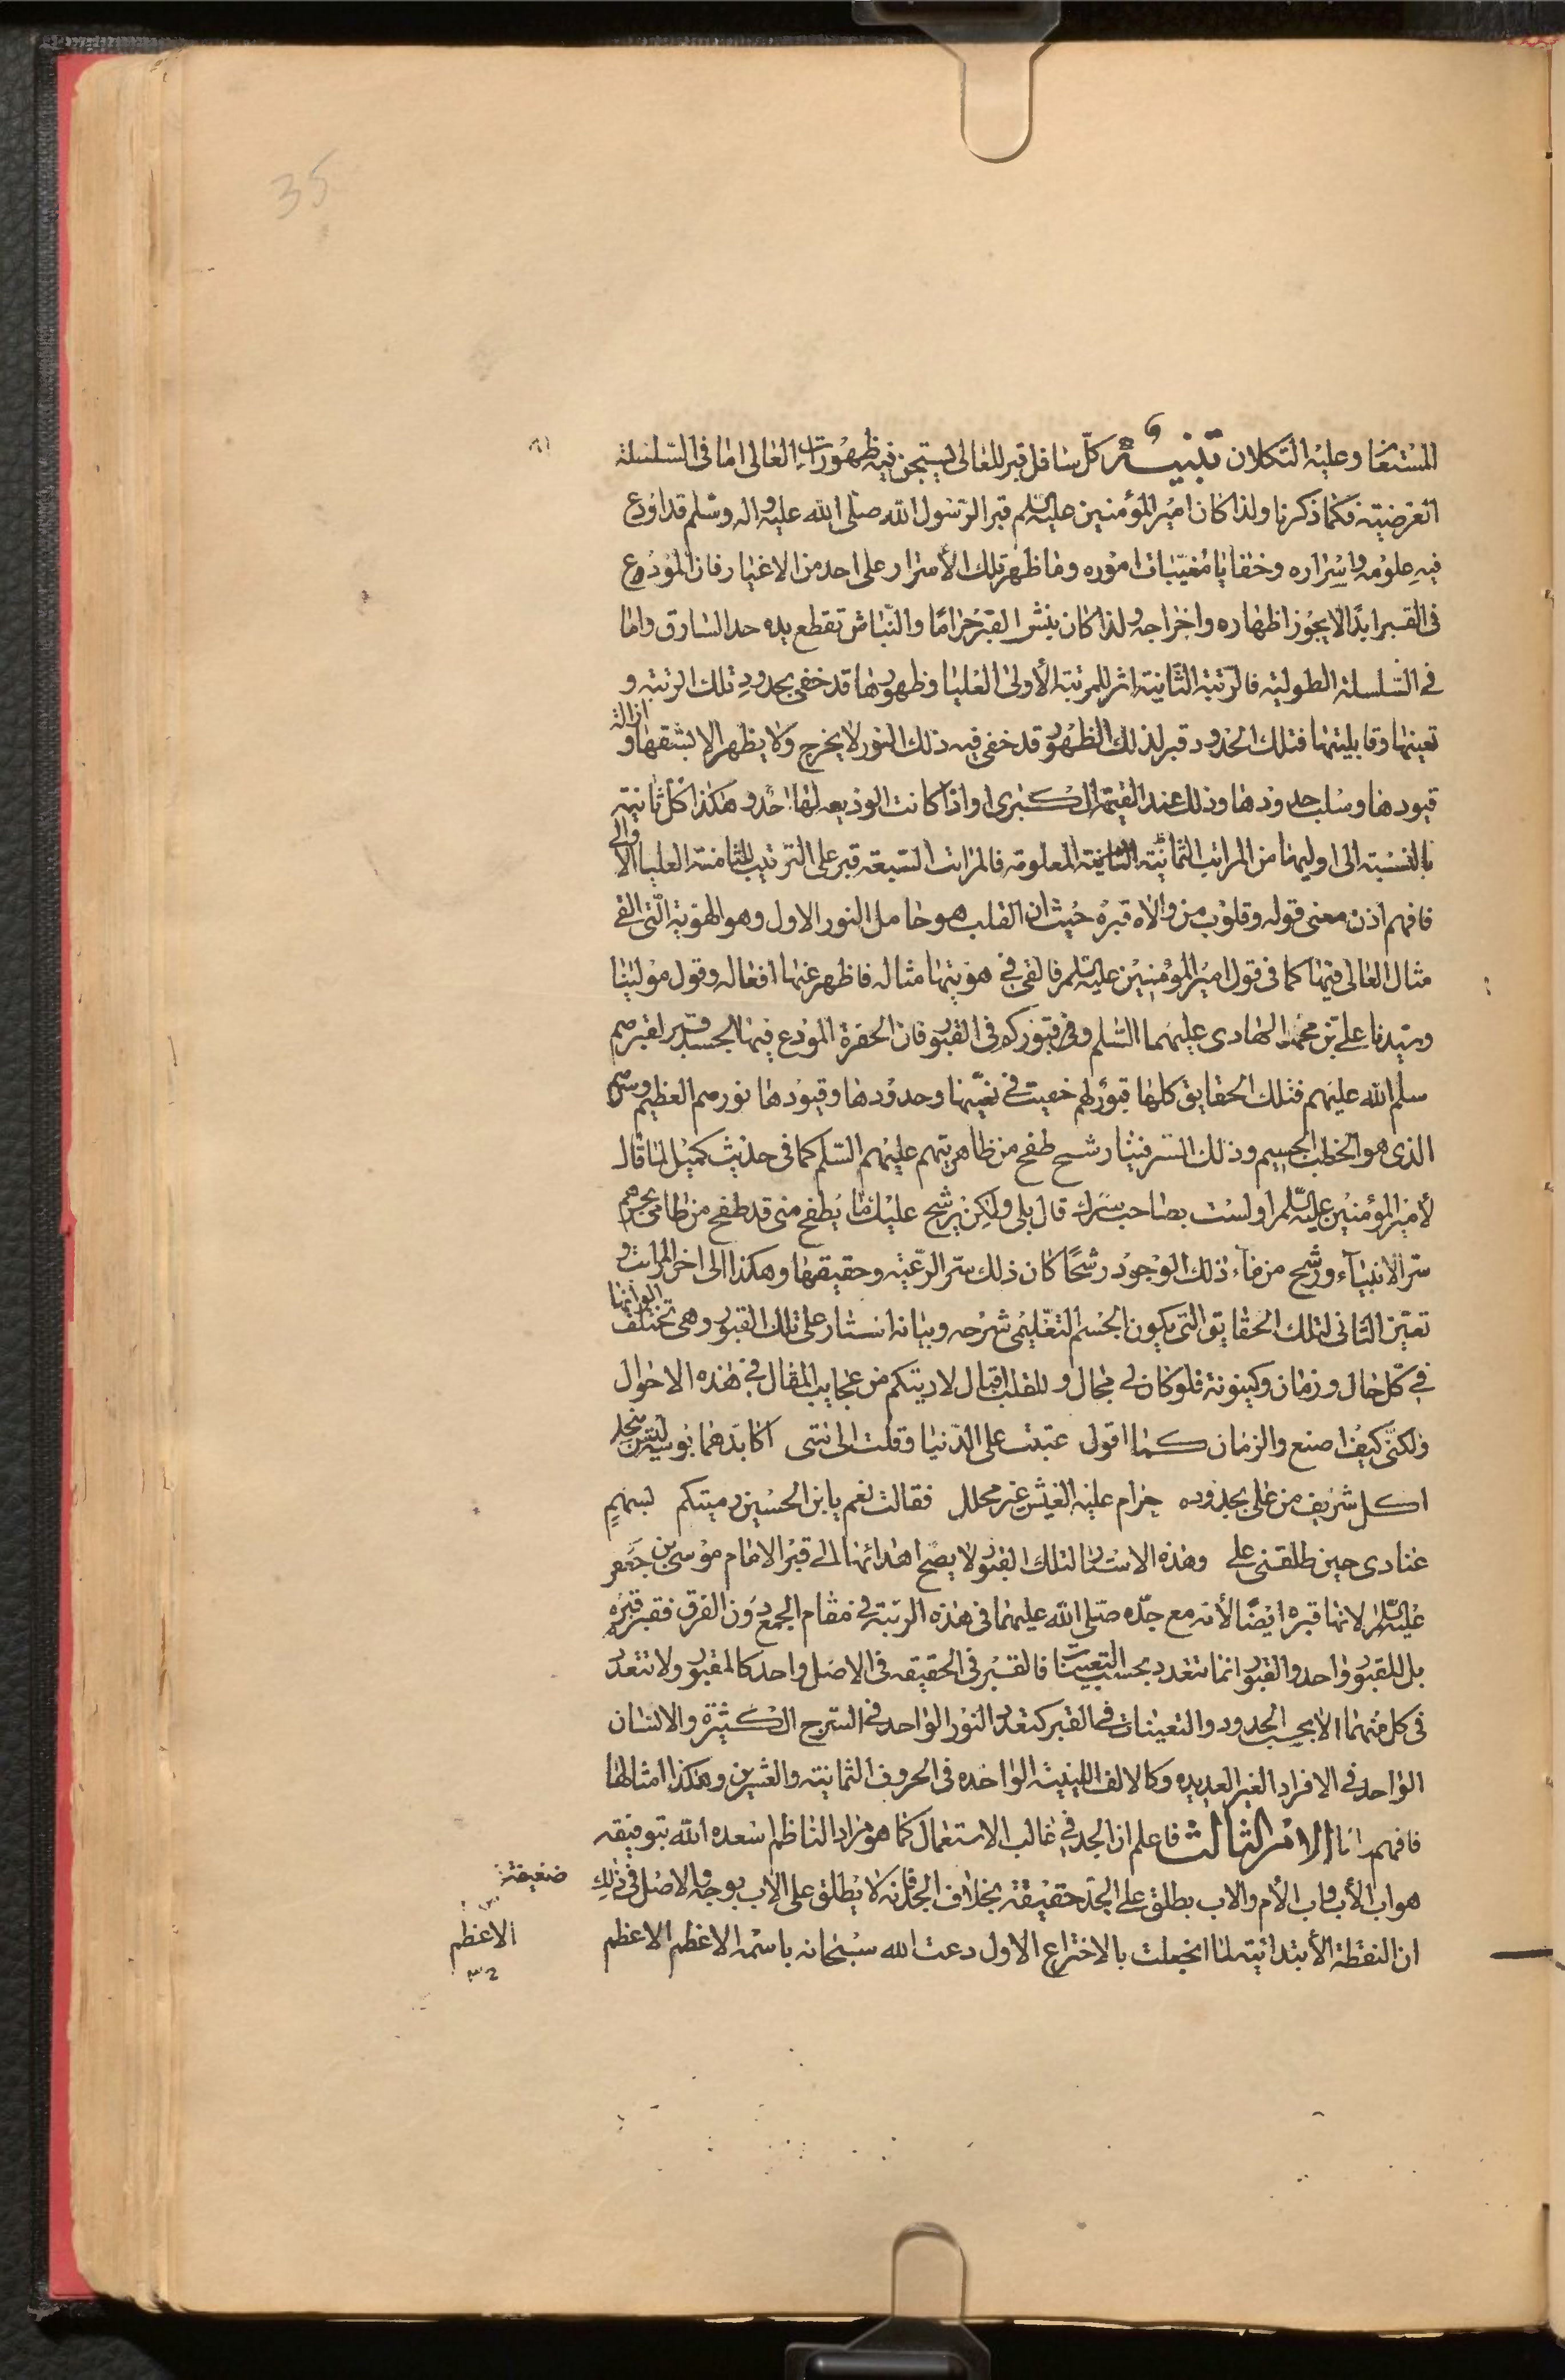 35
المستعان وعليه التكلان تنبيه كلّ سافل قبر للعالى يستجن فيه ظهورات العالى اما فى السّلسلة
العرضيته فكما ذكرنا ولذا كان امير المؤمنين عليه السلم قبر الرّسول الله صلى الله عليه واله وسلم قد اودع
فيه علومه واسراره وخفايا مغيّبات اموره وما ظهر تلك الأسرار على احد من الاغيار فان المودوع
فى القبر ابدًا لا يجوز اظهاره واخراجه ولذا كان ينش القبر حرامًا والنّباش تقطع يده حد السارق واما
فى السّلسلة الطولية فالرّتبة الثّانية اثر للمرتبة الأولى العليا وظهورها قد خفى بحدود تلك الرتبة و
تعينها وقابليتها فتلك الحدود قبر لذلك الظهور قد خفى فيه ذلك النور لا يخرج ولا يظهر الا بشقها و ازالة
قيودها وسلب حدودها وذلك عند القيمة الكبرى اواذا كانت الوديعه لها احد وهكذا كل ثانيته
بالنسبته الى اوليها من المراتب الثمانية المعلومة فالمراتب السّبعة قبر على الترتيب للثامنة العليا الا والى
فافهم اذن معنى قوله وقلوب من والاه قبره حيث ان القلب هو حامل النور الاول وهو الهوية الّتى القى
مثال العالى فيها كما فى قول امير المؤمنين عليه السلم فالقى فى هويتها مثاله فاظهر عنها افعاله وقول مولينا
وسيّدنا على بن محمد الهادى عليهما السّلم وفى قبوركم فى القبور فان الحفرة المودع فيها الجسد قبر لقبرهم
سلم الله عليهم فتلك الحقايق كلها قبور لهم خفيت فى تعيّنها وحدودها وقيودها نورهم العظيم وسرهم
الذى هو الخطب الجسيم وذلك السر فينا رشح طفح من ظاهريتهم عليهم السّلم كما فى حديث كميل لما قال
لأمير المؤمنين عليه السّلم اولست بصاحب سرّك قال بلى ولكن يرشح عليك ما يطفح منى قد طفح من طامى بحرهم
سرّ الانبياء ورشح من ماء ذلك الوجود رشحًا كان ذلك سّر الرّعيّه وحقيقتها وهكذا الى اخر المراتب و
تعيّن الثانى لتلك الحقايق التى يكون الجسم التعليمى شرحه وبيانه انستار على تلك القبور وهى تختلف الوانها
فى كلّ حال وزمان وكينونة فلو كان لى مجال وللقلب اقبال لاريتكم من عجايب المقال فى هذه الاحوال
ولكنّ كيف اصنع والزمان كما اقول عتبت على الدّنيا وقلت الى متى اكابد هما بؤسه ليس ينجلى
اكل شريف من على بجدوده حرام عليه العيش غير محلل فقالت نعم يا ابن الحسين رميتكم بسهمٍ
عنادى حين طلقنى على وهذه الاستار لتلك القبور لا يصح اهدائها الى قبر الامام موسى بن جعفر
عليه السّلم لانها قبره ايضًا لأنه مع جدّه صلى الله عليهما فى هذه الرتبة فى مقام الجمع دون الفرق فقبره قبره
بل للقبور واحد والقبور انما تتعدد بحسب التعينات فالقبر فى الحقيقه فى الاصل واحد كالمقبور ولا تتعدد
فى كل منهما الا بحسب الحدود والتعينات فى القبر كتعدد النور الواحد فى السّرج الكثيرة والانسان
الواحد فى الافراد الغير العديده وكالالف اللينيه الواحده فى الحروف الثمانيته والعشرين وهكذا امثالها
فافهم اما الامر الثالث فاعلم ان الجد فى غالب الاستعمال كما هو مراد الناظم اسعده الله بتوفيقه
هو اب الأب واب الأم والاب يطلق على الجد حقيقة بخلاف الجد فانه لا يطلق على الاب بوجه والاصل فى ذلك
ضعيفة
ان النقطة الأبتدائيته لما انجعلت بالاختراع الاول دعت الله سبحانه باسمه الاعظم الاعظم
الاعظم